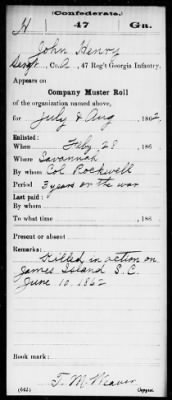 (Confederate.)
H 47 Ga.
John Henry
Sergt, Co. A, 47 Reg't Georgia Infantry.
Appears on
Company Muster Roll
of the organization named above,
for July & Aug, 1862.
Enlisted:
When Feby 28, 186
Where Savannah
By whom Col Rockwell
Period 3 years or the war
Last paid:
By whom
To what time , 186 .
Present or absent
Remarks:
Killed in action on
James Island S.C.
June 10, 1862
Book mark:
T. M. Weaver
(642) Copyist.